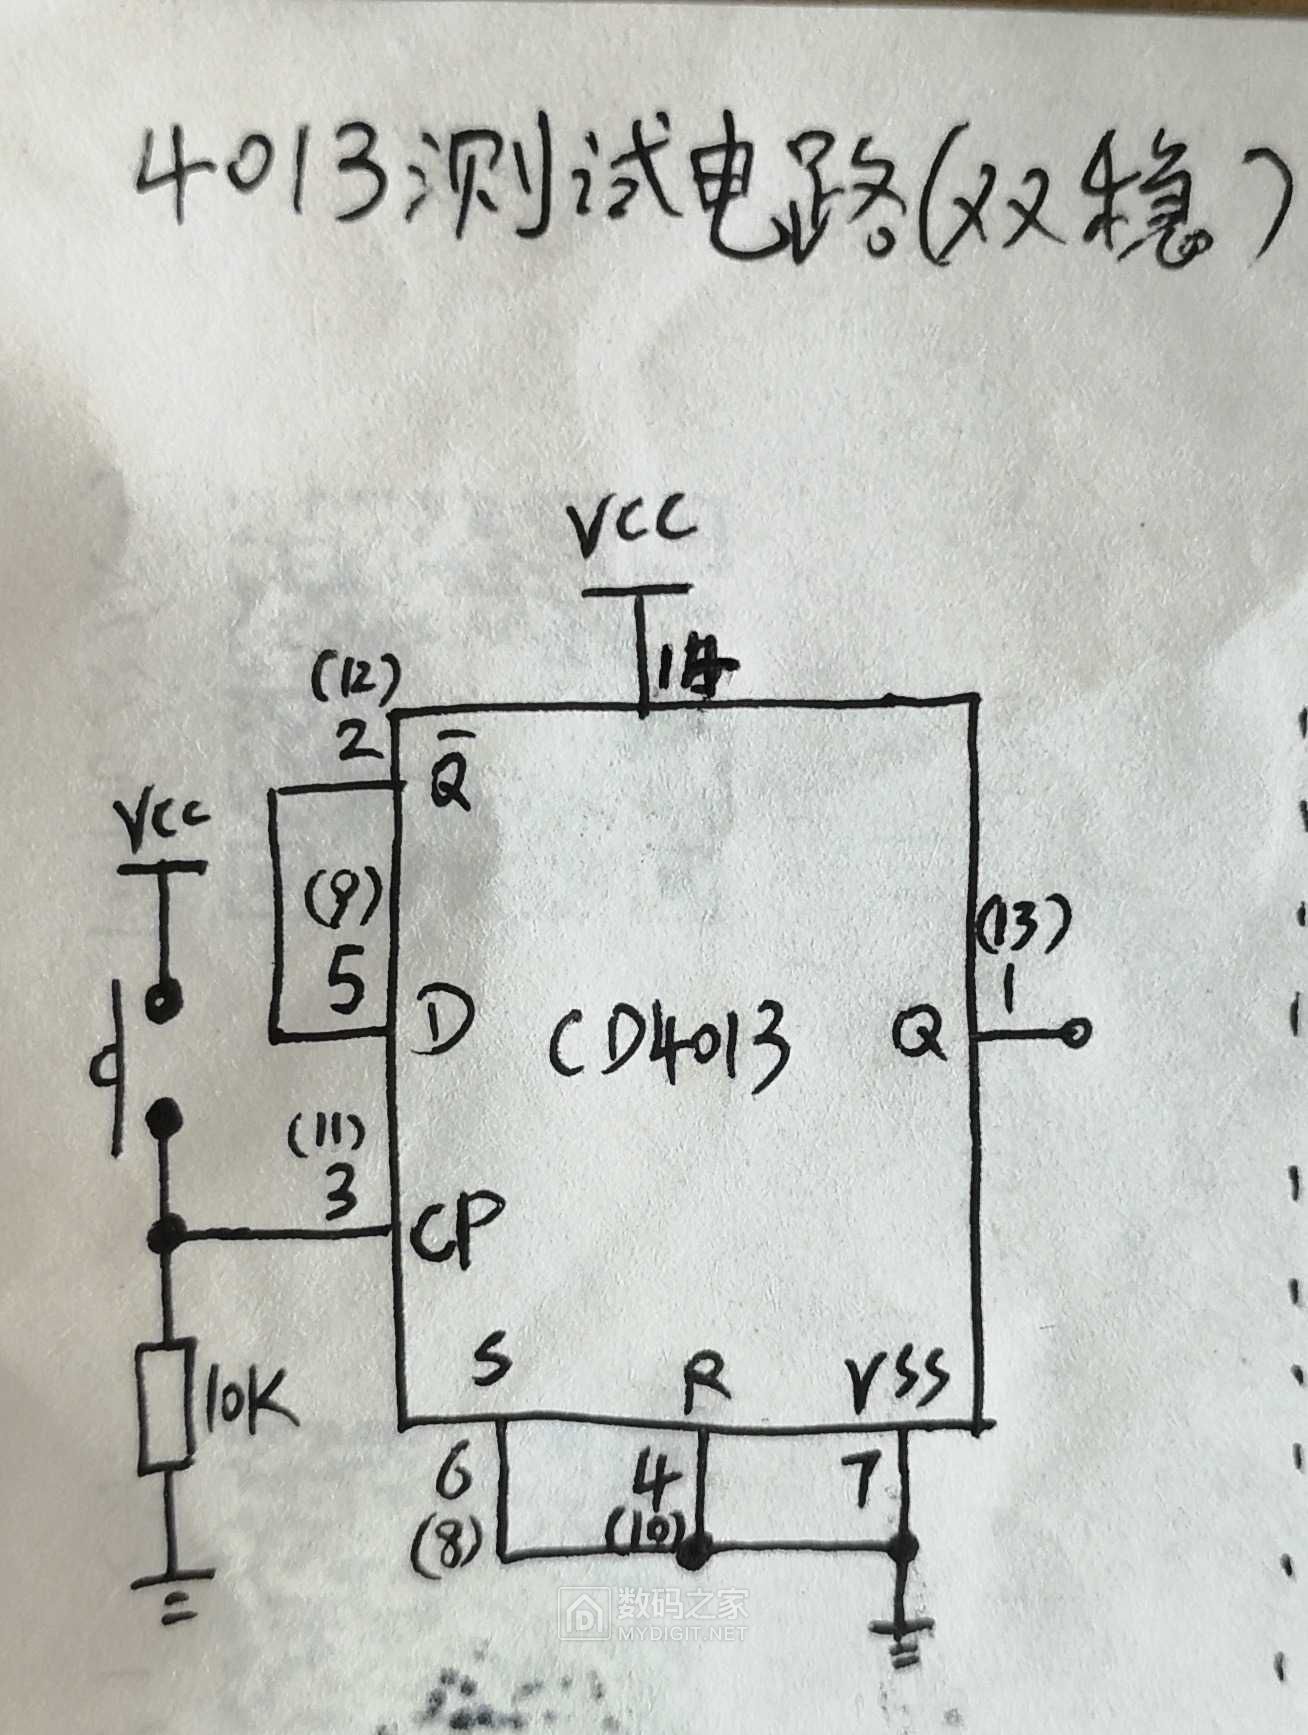 4013测试电路(双稳)
VCC
14
(12)
2
Q̅
VCC
(9)
5
D
CD4013
Q
(13)
1
(11)
3
CP
10K
S
R
VSS
6
4
7
(8)
(10)
数码之家
MYDIGIT.NET